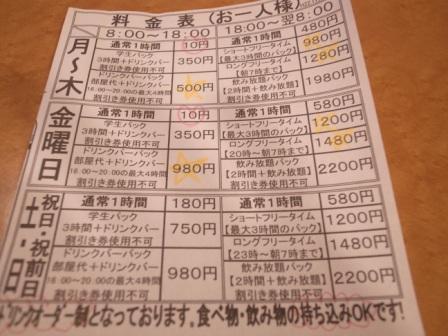 料金表(お一人様)
8:00～18:00 18:00～翌8:00
月～木
通常1時間 10円 通常1時間 480円
学生パック 350円 ショートフリータイム 980円
3時間+ドリンクバー 【最大3時間のパック】
割引き券使用不可 ロングフリータイム 1280円
ドリンクバーパック 500円 【朝7時まで】
部屋代+ドリンクバー 飲み放題パック 1980円
16:00～20:00の最大4時間 【2時間+飲み放題】
割引き券使用不可 割引き券使用不可
金曜日
通常1時間 10円 通常1時間 580円
学生パック 350円 ショートフリータイム 1200円
3時間+ドリンクバー 【最大3時間のパック】
割引き券使用不可 ロングフリータイム 1480円
ドリンクバーパック 980円 【20時～朝7時まで】
部屋代+ドリンクバー 飲み放題パック 2200円
16:00～20:00の最大4時間 【2時間+飲み放題】
割引き券使用不可 割引き券使用不可
土・日
祝日・祝前日
通常1時間 180円 通常1時間 580円
学生パック 750円 ショートフリータイム 1200円
3時間+ドリンクバー 【最大3時間のパック】
割引き券使用不可 ロングフリータイム 1480円
ドリンクバーパック 980円 【23時～朝7時まで】
部屋代+ドリンクバー 飲み放題パック 2200円
16:00～20:00の最大4時間 【2時間+飲み放題】
割引き券使用不可 割引き券使用不可
ドリンクオーダー制となっております。食べ物・飲み物の持ち込みOKです!